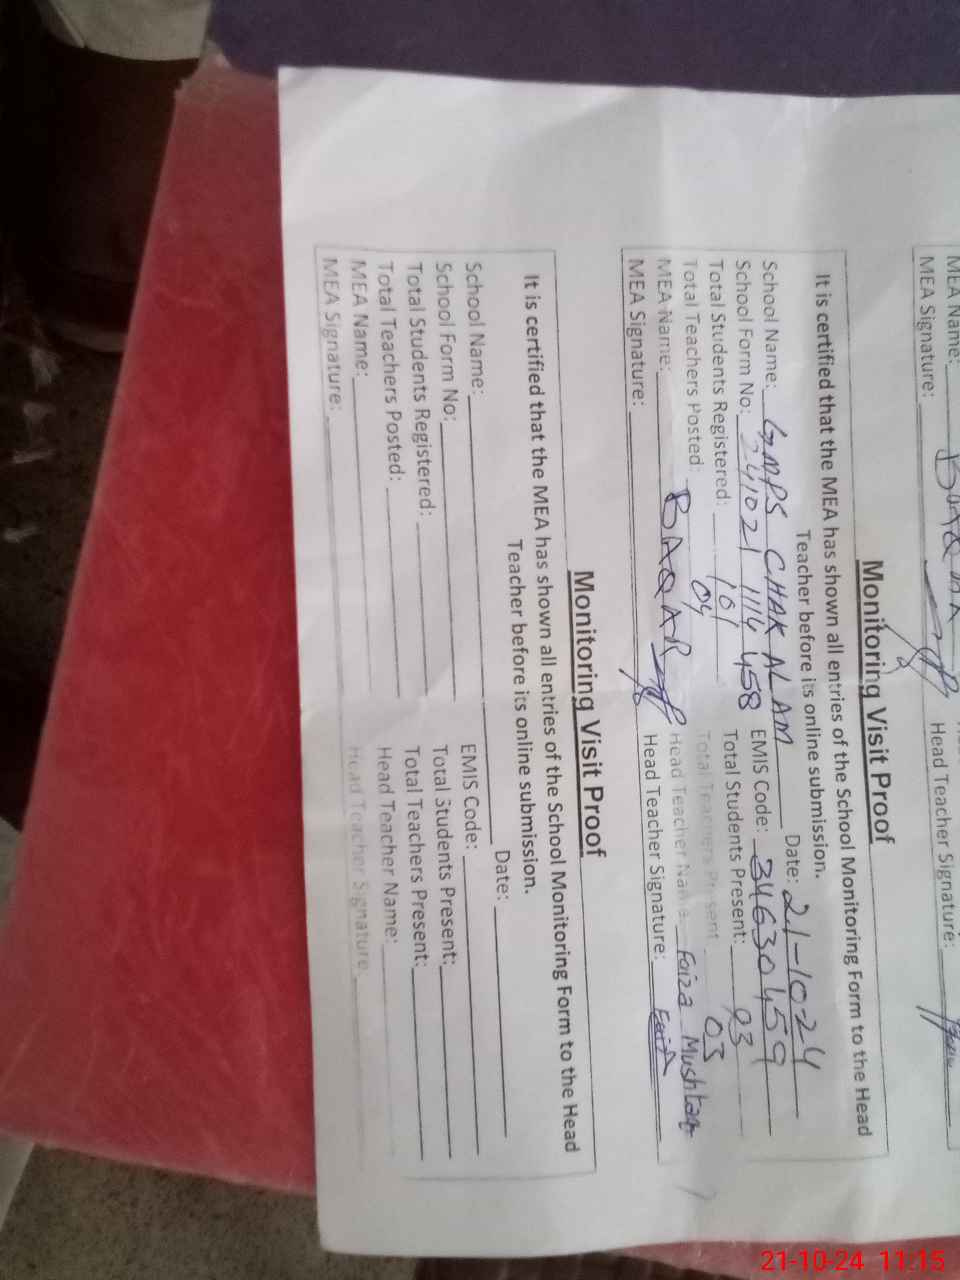 MEA Name: BAQAR
MEA Signature: Head Teacher Signature:
Monitoring Visit Proof
It is certified that the MEA has shown all entries of the School Monitoring Form to the Head
Teacher before its online submission.
School Name: GMPS CHAK ALAM Date: 21-10-24
School Form No: 241021 1114 458 EMIS Code: 34630459
Total Students Registered: 101 Total Students Present: 93
Total Teachers Posted: 04 Total Teachers Present 03
MEA Name: BAQAR Head Teacher Name: Faiza Mushtaq
MEA Signature: Head Teacher Signature:
Monitoring Visit Proof
It is certified that the MEA has shown all entries of the School Monitoring Form to the Head
Teacher before its online submission.
School Name: Date:
School Form No: EMIS Code:
Total Students Registered: Total Students Present:
Total Teachers Posted: Total Teachers Present:
MEA Name: Head Teacher Name:
MEA Signature: Head Teacher Signature:
21-10-24 11:15